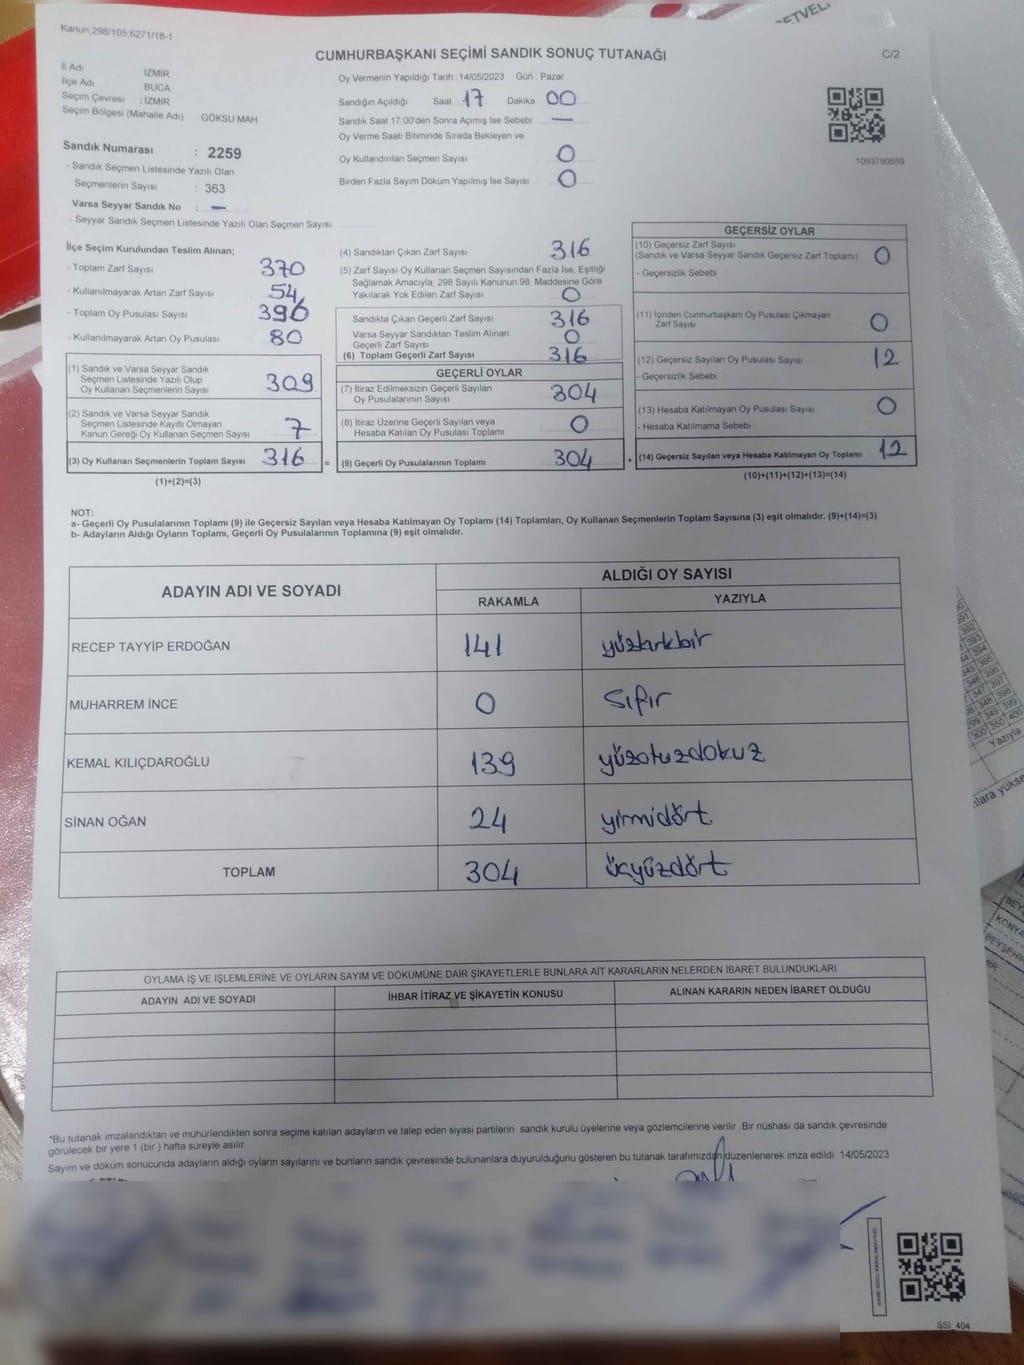 Kanun,298/105,6271/18-1
CUMHURBAŞKANI SEÇİMİ SANDIK SONUÇ TUTANAĞI
C/2
İl Adı İZMİR
İlçe Adı BUCA
Seçim Çevresi : İZMİR
Seçim Bölgesi (Mahalle Adı) GÖKSU MAH
Sandık Numarası : 2259
- Sandık Seçmen Listesinde Yazılı Olan
Seçmenlerin Sayısı : 363
Varsa Seyyar Sandık No : —
- Seyyar Sandık Seçmen Listesinde Yazılı Olan Seçmen Sayısı:
Oy Vermenin Yapıldığı Tarih :14/05/2023 Gün : Pazar
Sandığın Açıldığı Saat 17 Dakika 00
Sandık Saat 17:00'den Sonra Açımış İse Sebebi —
Oy Verme Saati Bitiminde Sırada Bekleyen ve
Oy Kullandırılan Seçmen Sayısı 0
Birden Fazla Sayım Döküm Yapılmış İse Sayısı 0
1093790659
İlçe Seçim Kurulundan Teslim Alınan;
- Toplam Zarf Sayısı 370
- Kullanılmayarak Artan Zarf Sayısı 54
- Toplam Oy Pusulası Sayısı 396
- Kullanılmayarak Artan Oy Pusulası 80
(1) Sandık ve Varsa Seyyar Sandık
Seçmen Listesinde Yazılı Olup
Oy Kullanan Seçmenlerin Sayısı 309
(2) Sandık ve Varsa Seyyar Sandık
Seçmen Listesinde Kayıtlı Olmayan
Kanun Gereği Oy Kullanan Seçmen Sayısı 7
(3) Oy Kullanan Seçmenlerin Toplam Sayısı 316 =
(1)+(2)=(3)
(4) Sandıktan Çıkan Zarf Sayısı 316
(5) Zarf Sayısı Oy Kullanan Seçmen Sayısından Fazla İse, Eşitliği
Sağlamak Amacıyla, 298 Sayılı Kanunun 98. Maddesine Göre
Yakılarak Yok Edilen Zarf Sayısı 0
Sandıkta Çıkan Geçerli Zarf Sayısı 316
Varsa Seyyar Sandıktan Teslim Alınan
Geçerli Zarf Sayısı 0
(6) Toplam Geçerli Zarf Sayısı 316
GEÇERLİ OYLAR
(7) İtiraz Edilmeksizin Geçerli Sayılan
Oy Pusulalarının Sayısı 304
(8) İtiraz Üzerine Geçerli Sayılan veya
Hesaba Katılan Oy Pusulası Toplamı 0
(9) Geçerli Oy Pusulalarının Toplamı 304 +
GEÇERSİZ OYLAR
(10) Geçersiz Zarf Sayısı
(Sandık ve Varsa Seyyar Sandık Geçersiz Zarf Toplamı) 0
- Geçersizlik Sebebi
(11) İçinden Cumhurbaşkanı Oy Pusulası Çıkmayan
Zarf Sayısı 0
(12) Geçersiz Sayılan Oy Pusulası Sayısı 12
- Geçersizlik Sebebi
(13) Hesaba Katılmayan Oy Pusulası Sayısı 0
- Hesaba Katılmama Sebebi
(14) Geçersiz Sayılan veya Hesaba Katılmayan Oy Toplamı 12
(10)+(11)+(12)+(13)=(14)
NOT:
a- Geçerli Oy Pusulalarının Toplamı (9) ile Geçersiz Sayılan veya Hesaba Katılmayan Oy Toplamı (14) Toplamları, Oy Kullanan Seçmenlerin Toplam Sayısına (3) eşit olmalıdır. (9)+(14)=(3)
b- Adayların Aldığı Oyların Toplamı, Geçerli Oy Pusulalarının Toplamına (9) eşit olmalıdır.
ADAYIN ADI VE SOYADI
ALDIĞI OY SAYISI
RAKAMLA YAZIYLA
RECEP TAYYİP ERDOĞAN 141 yüzkırkbir
MUHARREM İNCE 0 Sıfır
KEMAL KILIÇDAROĞLU 139 yüzotuzdokuz
SİNAN OĞAN 24 yirmidört
TOPLAM 304 üçyüzdört
OYLAMA İŞ VE İŞLEMLERİNE VE OYLARIN SAYIM VE DÖKÜMÜNE DAİR ŞİKAYETLERLE BUNLARA AİT KARARLARIN NELERDEN İBARET BULUNDUKLARI
ADAYIN ADI VE SOYADI
İHBAR İTİRAZ VE ŞİKAYETİN KONUSU
ALINAN KARARIN NEDEN İBARET OLDUĞU
*Bu tutanak imzalandıktan ve mühürlendikten sonra seçime katılan adayların ve talep eden siyasi partilerin sandık kurulu üyelerine veya gözlemcilerine verilir. Bir nüshası da sandık çevresinde
görülecek bir yere 1 (bir) hafta süreyle asılır.
Sayım ve döküm sonucunda adayların aldığı oyların sayılarını ve bunların sandık çevresinde bulunanlara duyurulduğunu gösteren bu tutanak tarafımızdan düzenlenerek imza edildi. 14/05/2023
SSI_404